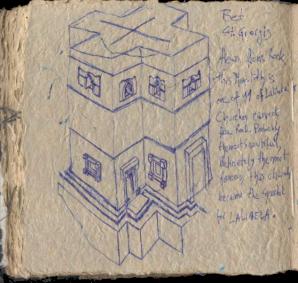 Bet
St. Georgis
Hewn from Rock
this
one of 11 of Lalibela
Churches carved
from Rock. Probably
the most beautiful,
definitely the most
famous, this church
became the symbol
of LALIBELA.